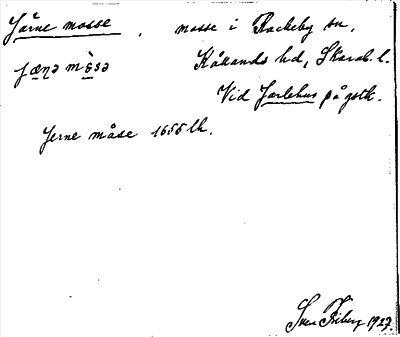 Järne mosse, mosse i Rackeby sn,
jæṇə mòsə Kållands hd, Skarab. l.
Vid Jarlehus på gstk.
Jerne måse 1655 lk.
Sven Friberg 1927.